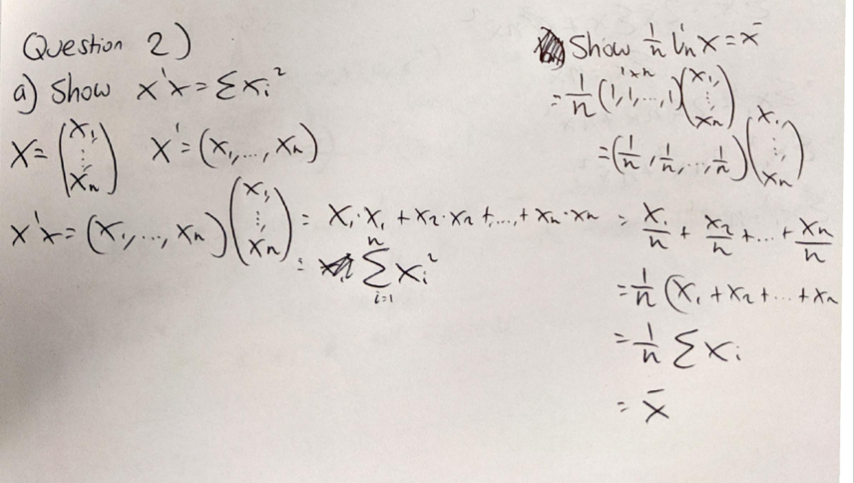 Question 2)
a) Show x'x = Σxi²
X = (x1, ⋮, xn) X' = (x1, ..., xn)
x'x = (x1, ..., xn)(x1, ⋮, xn) = x1·x1 + x2·x2 + ,..., + xn·xn
= n Σ i=1 xi²
Show 1/n 1'n x = x̄
1×n
= 1/n (1, 1, ..., 1)(x1, ⋮, xn)
= (1/n, 1/n, ..., 1/n)(x1, ⋮, xn)
= x1/n + x2/n + ... + xn/n
= 1/n (x1 + x2 + ... + xn
= 1/n Σ xi
= x̄